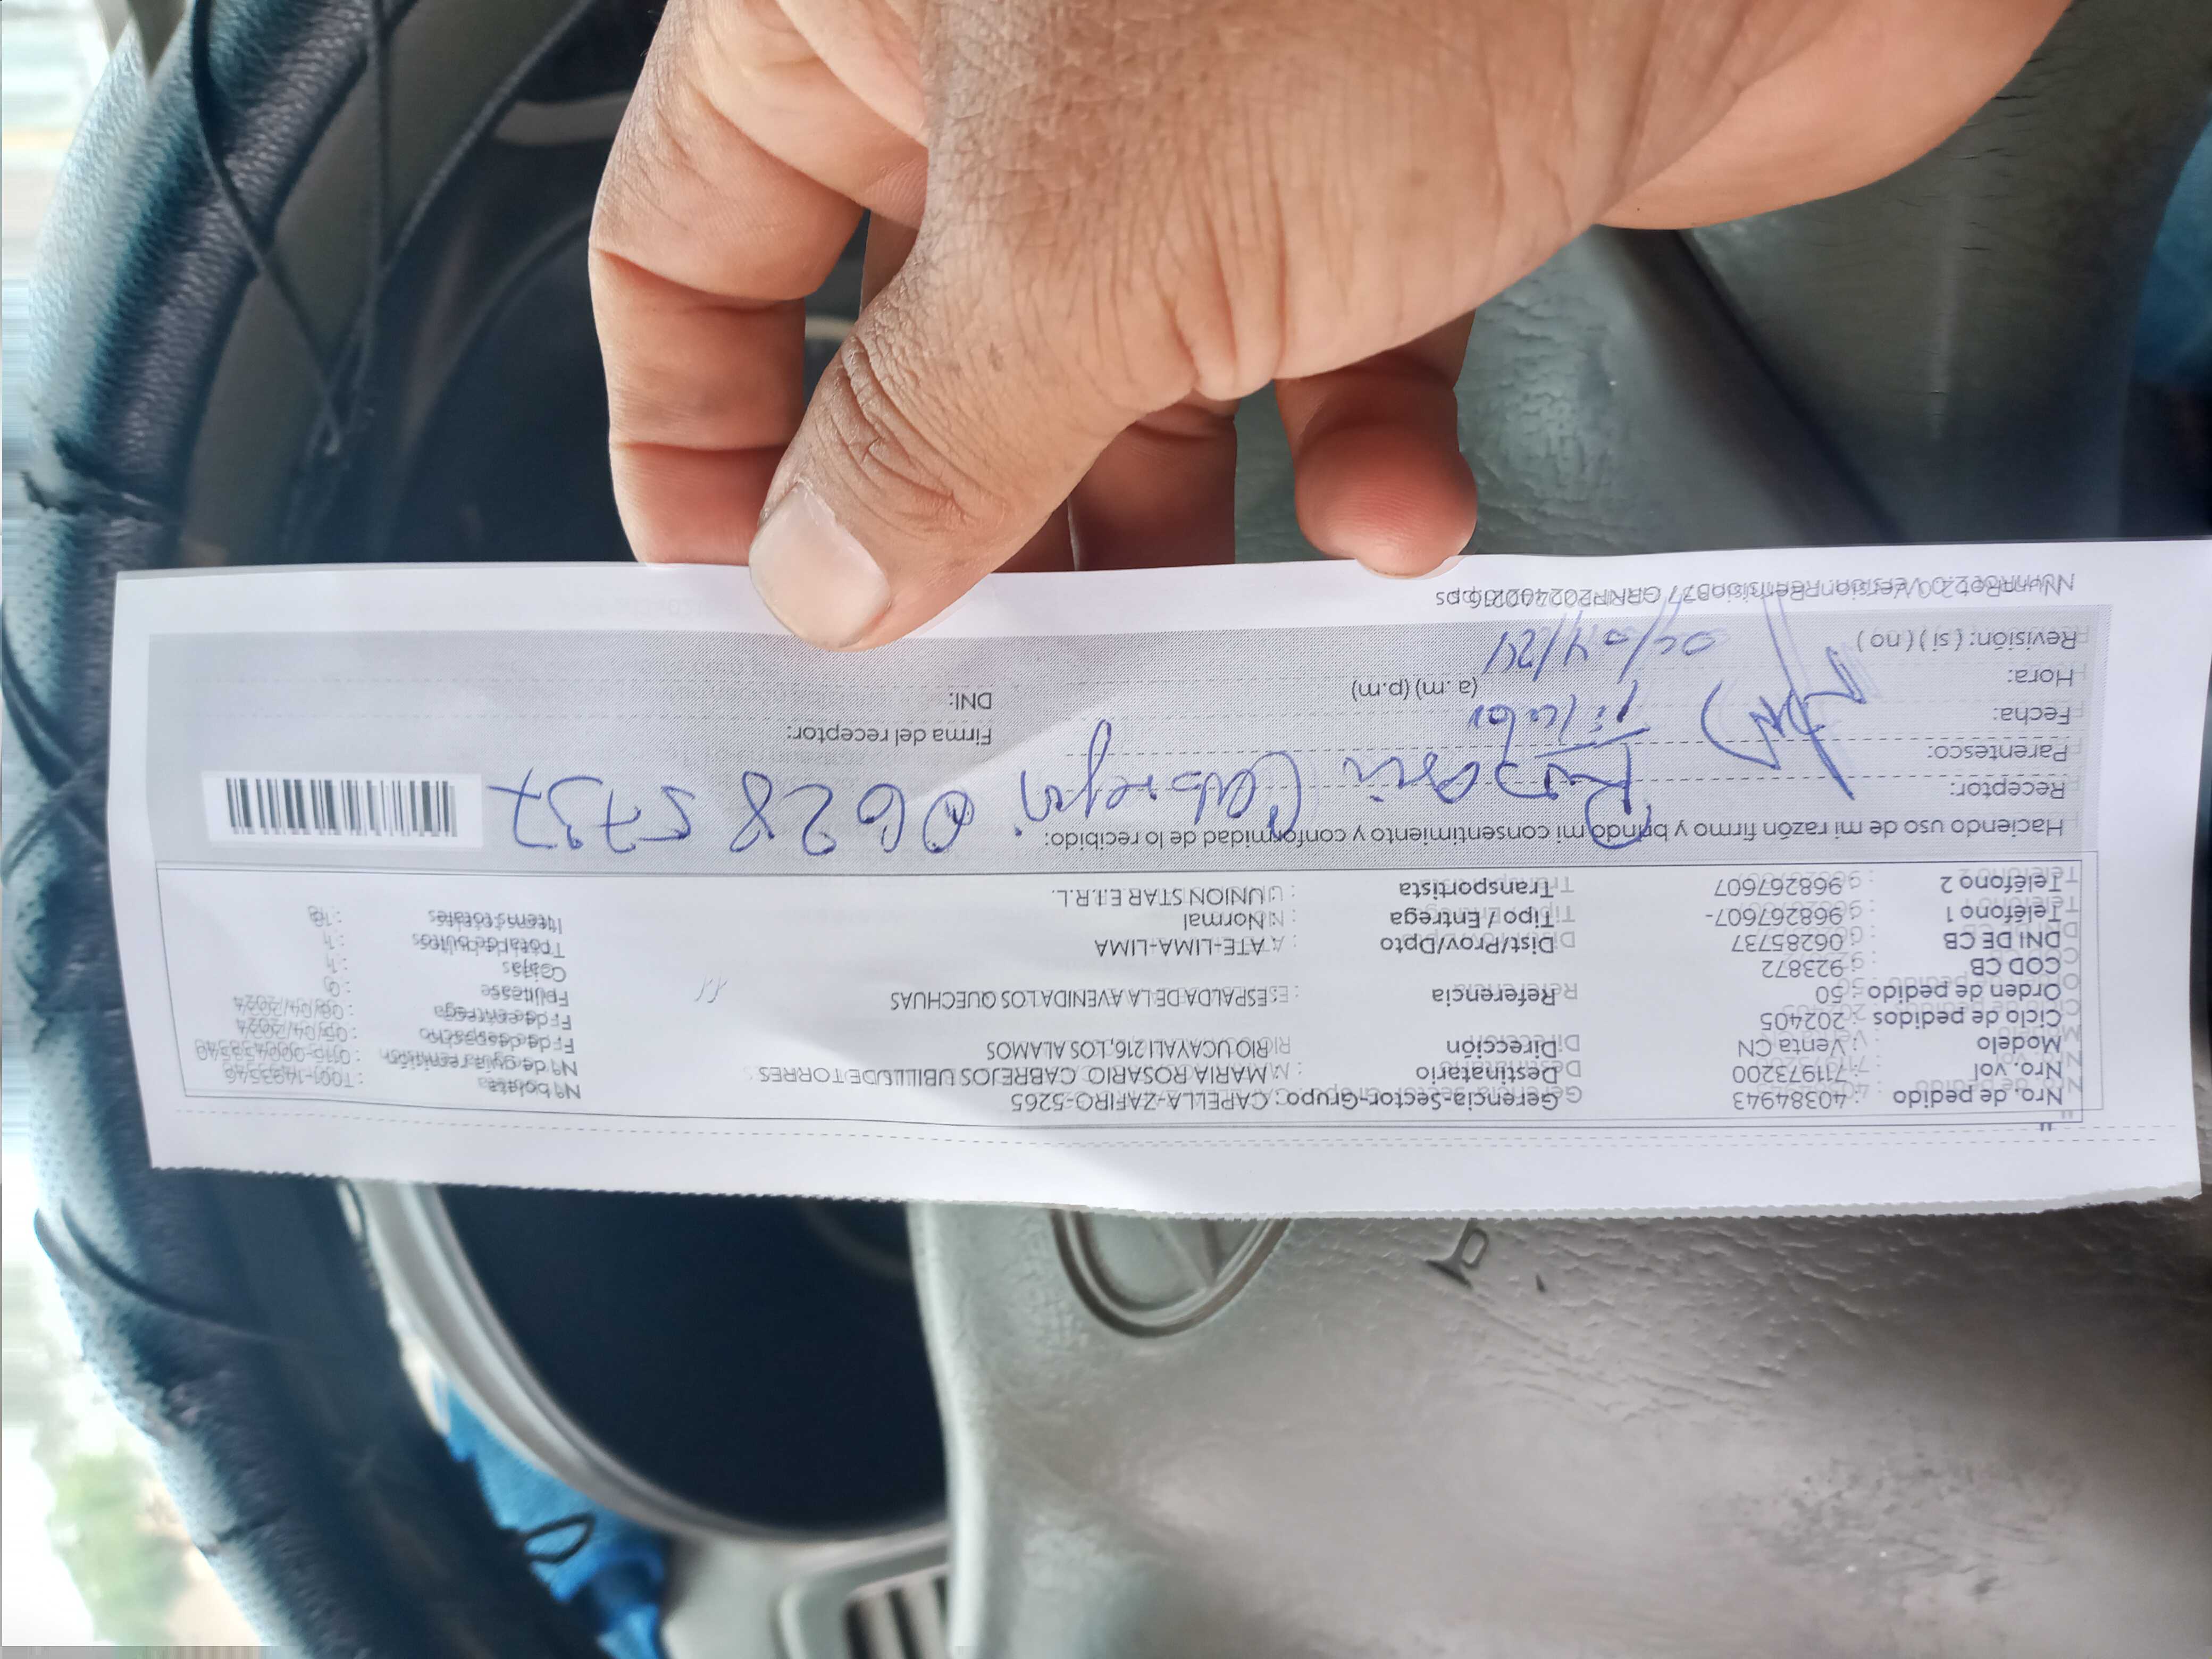 Nro. de pedido : 40384943 Gerencia-Sector-Grupo : CAPELLA-ZAFIRO-5265 Nº boleta
Nro. vol : 711973200 Destinatario : MARIA ROSARIO CABREJOS UBILLUS DE TORRES Nº de guia remisión
Modelo : Venta CN Dirección RIO UCAYALI 216, LOS ALAMOS F. de despacho : 05/04/2024
Ciclo de pedidos 202405 F. de entrega : 06/04/2024
Orden de pedido : 50 Referencia : ESPALDA DE LA AVENIDA LOS QUECHUAS
COD CB 923872 Cajas
DNI DE CB : 06285737 Dist/Prov/Dpto : ATE-LIMA-LIMA Total de bultos
Teléfono 1 : 968267607- Tipo / Entrega : Normal Items totales
Teléfono 2 : 968267607 Transportista : UNION STAR E.I.R.L.
Haciendo uso de mi razón firmo y brindo mi consentimiento y conformidad de lo recibido:
Receptor: 06285737
Parentesco: Firma del receptor:
Fecha: Titular
Hora: (a.m) (p.m) DNI:
Revisión: ( si ) ( no ) 06/04/24